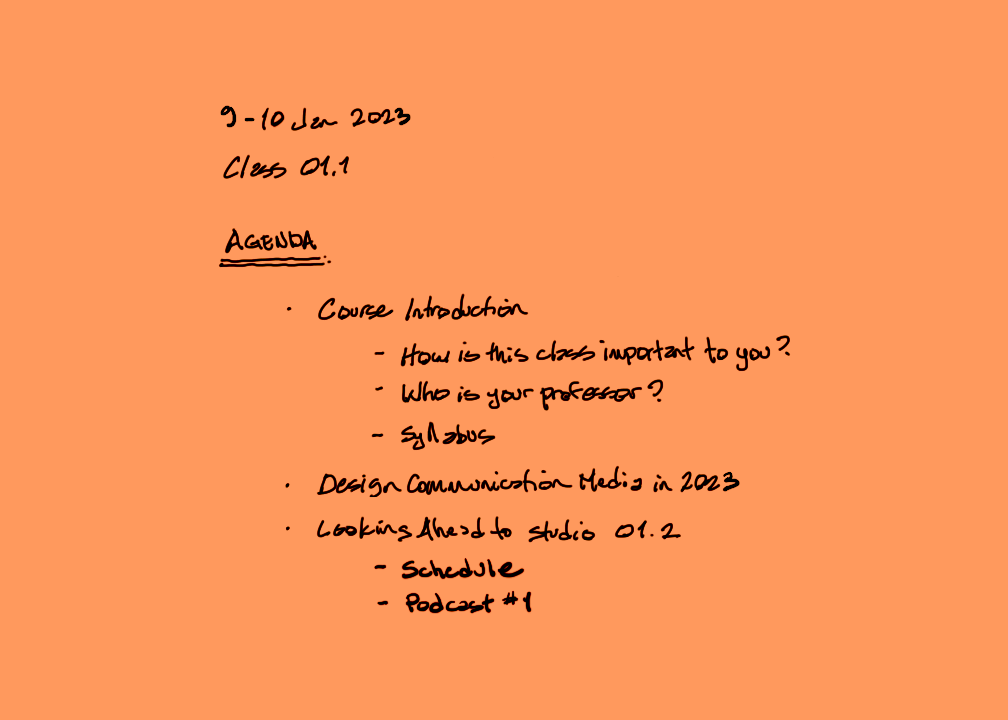 9-10 Jan 2023
Class 01.1
AGENDA:
· Course Introduction
- How is this class important to you?
- Who is your professor?
- Syllabus
· Design Communication Media in 2023
· Looking Ahead to Studio 01.2
- Schedule
- Podcast #1